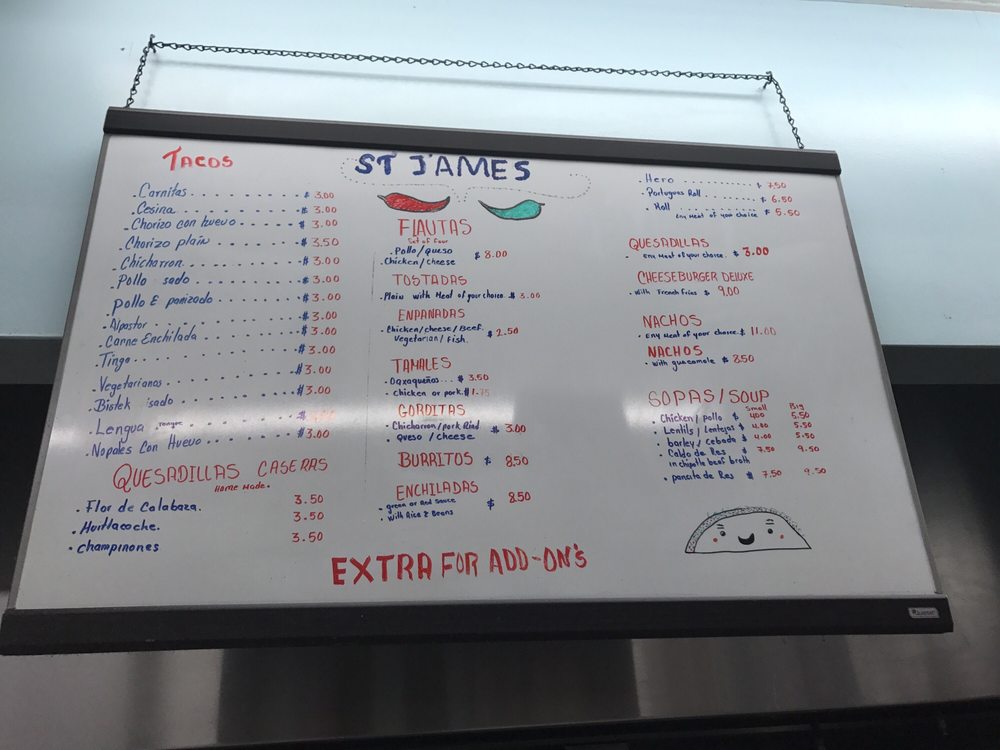 ST JAMES
TACOS
. Carnitas ........ $ 3.00
. Cesina ........ $ 3.00
. Chorizo con huevo ..... $ 3.00
. Chorizo plain ...... $ 3.50
. Chicharron ........ $ 3.00
. Pollo sado ........ $ 3.00
. pollo E panizado ...... $ 3.00
. Alpastor ........ $ 3.00
. Carne Enchilada ...... $ 3.00
. Tinga ........ $ 3.00
. Vegetarianos ........ $ 3.00
. Bistek sado ........ $ 3.00
. Lengua tongue ........ $
. Nopales Con Huevo ...... $ 3.00
QUESADILLAS CASERAS
Home Made.
. Flor de Calabaza. 3.50
. Huitlacoche. 3.50
. champinones 3.50
FLAUTAS
Set of four
. Pollo/queso
. Chicken/cheese $ 8.00
TOSTADAS
. Plain with Meat of your choice $ 3.00
ENPANADAS
. Chicken/cheese/Beef.
Vegetarian/Fish. $ 2.50
TAMALES
. Oaxaqueños... $ 3.50
. Chicken or pork. $ 1.75
GORDITAS
. Chicharron/pork Rind
. Queso/cheese $ 3.00
BURRITOS $ 8.50
ENCHILADAS
. green or Red Sauce
. With Rice & Beans $ 8.50
. Hero ........ $ 7.50
. Portugues Roll ...... $ 6.50
. Roll
Eny Meat of your choice $ 5.50
QUESADILLAS
. Eny Meat of your choice. $ 3.00
CHEESEBURGER DELUXE
. With French Fries $ 9.00
NACHOS
. Eny Meat of your choice. $ 11.00
NACHOS
. With guacamole $ 8.50
SOPAS/SOUP
Small Big
. Chicken/pollo $ 4.00 5.50
. Lentils/Lentejas $ 4.00 5.50
. barley/cebada $ 4.00 5.50
. Caldo de Res $ 7.50 9.50
in chipotle beef broth
. pancita de Res $ 7.50 9.50
EXTRA FOR ADD-ON'S